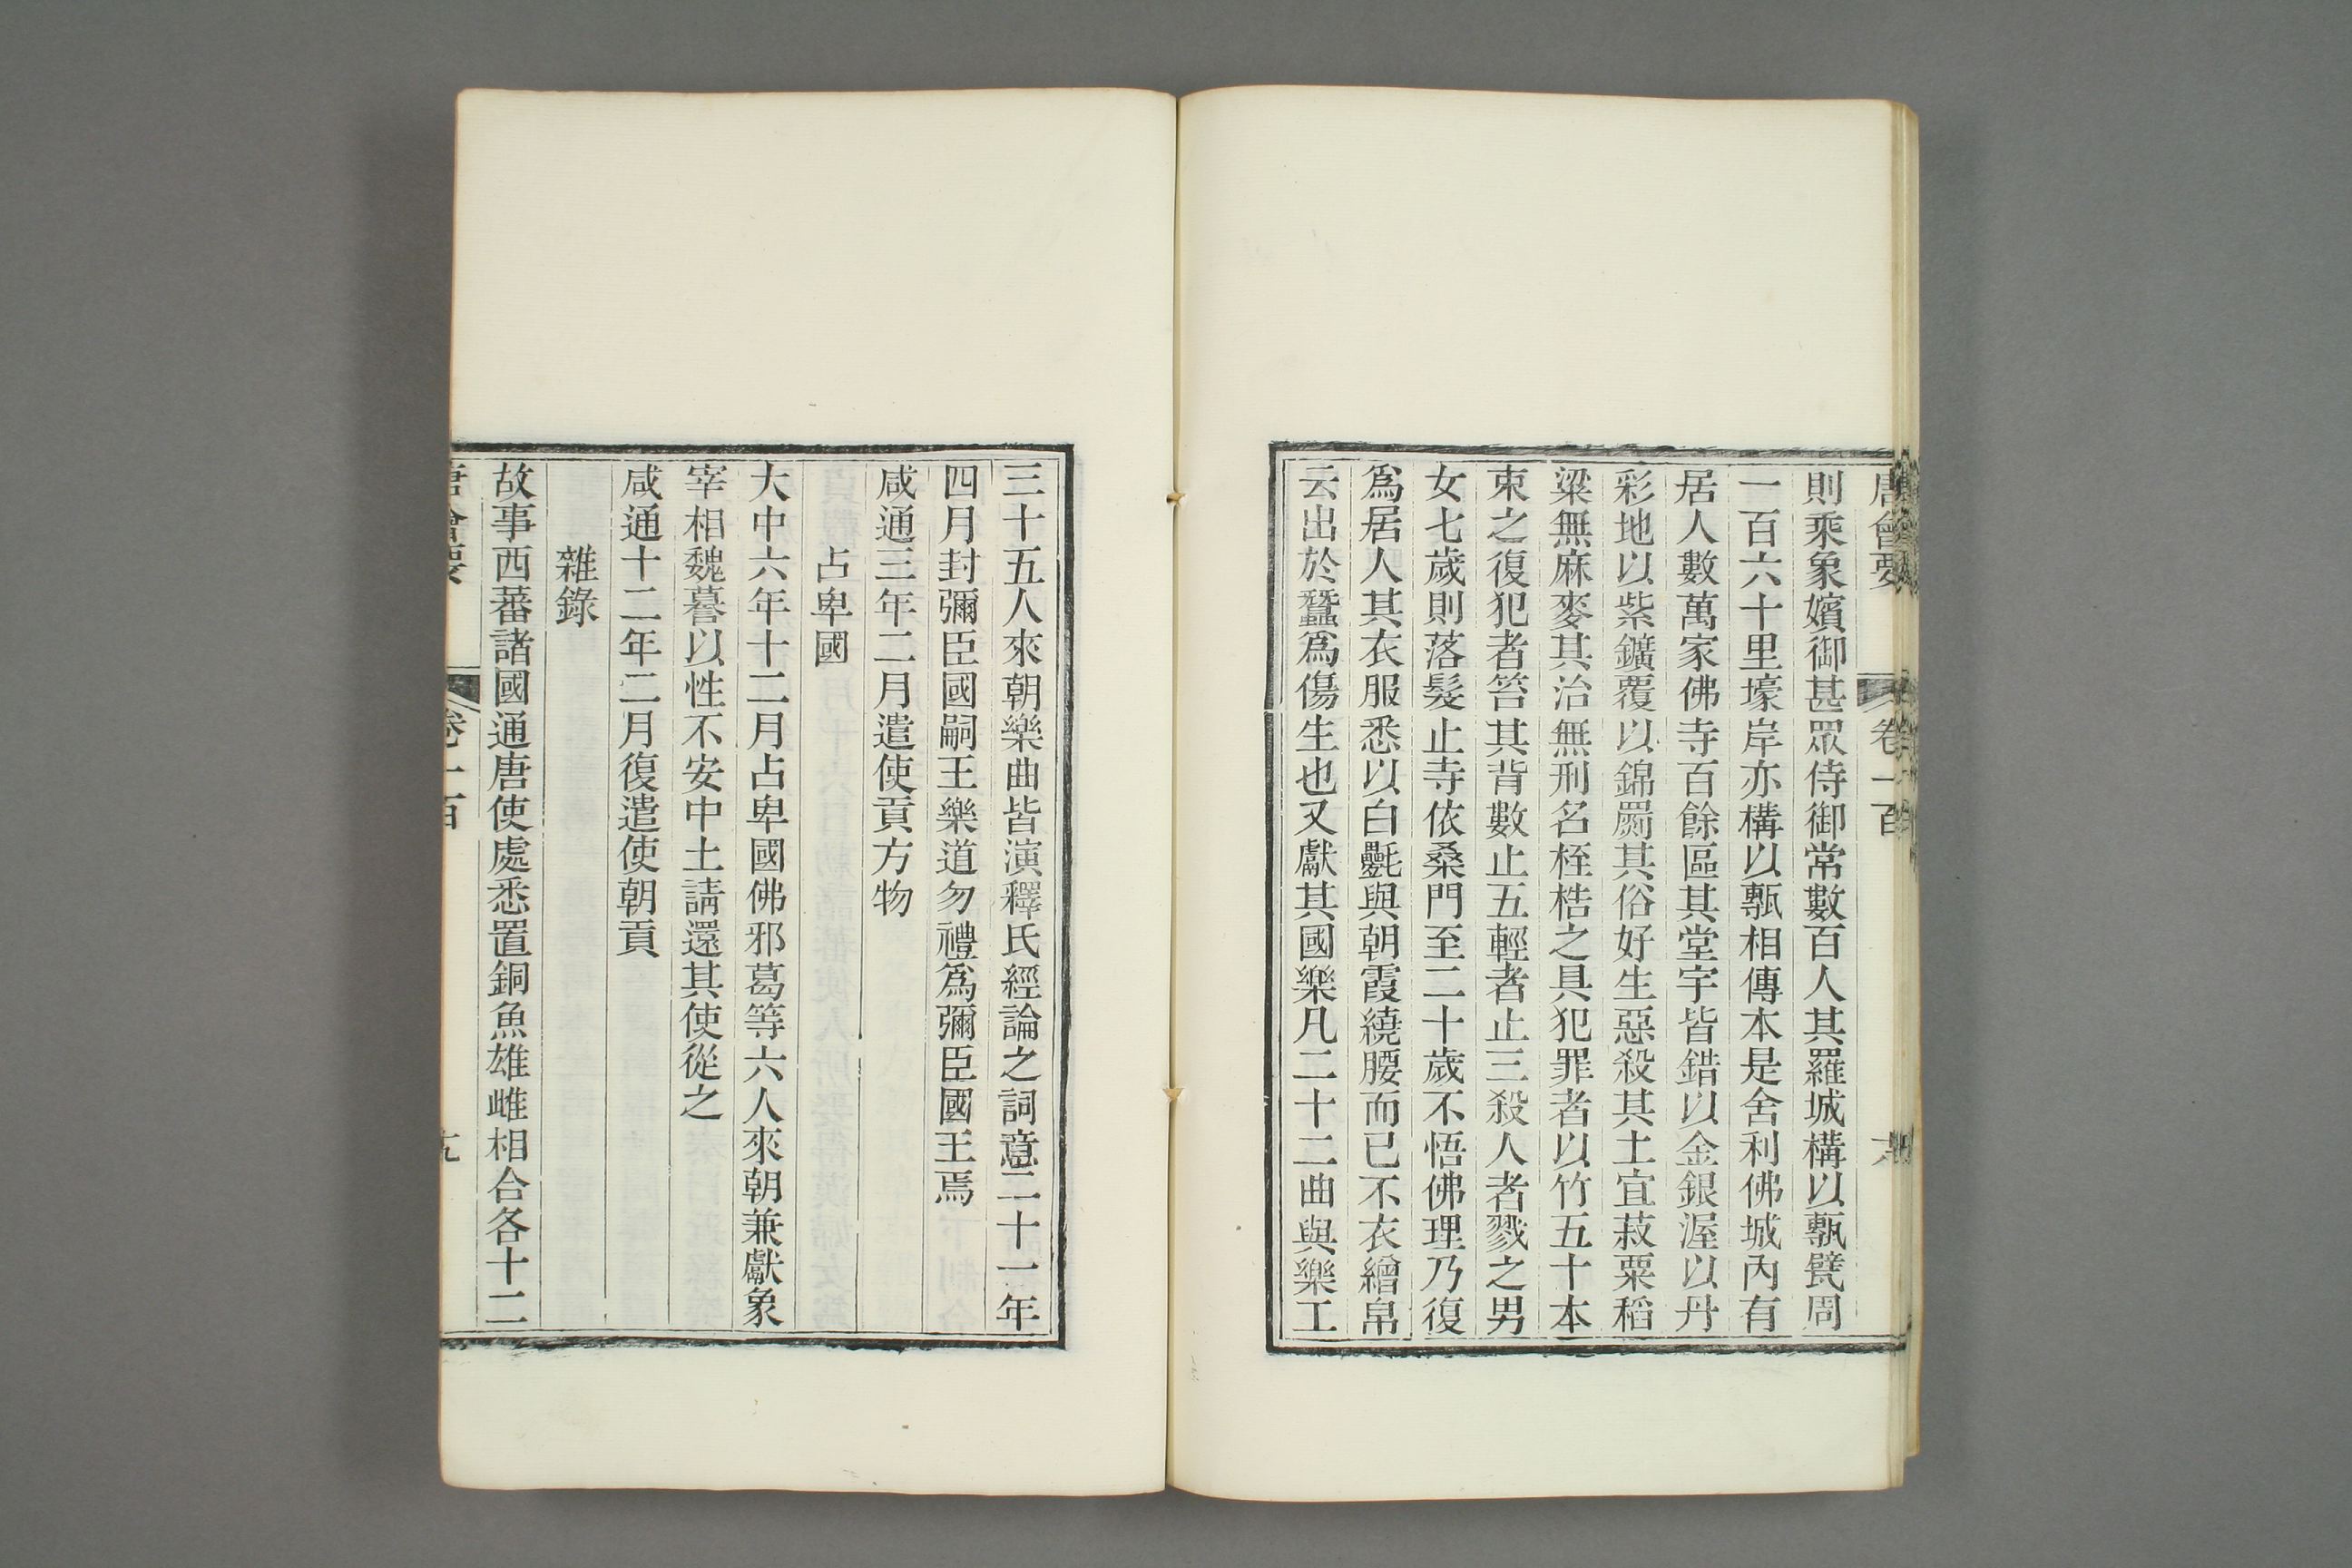 唐會要 卷一百
則乘象嬪御甚眾侍御常數百人其羅城構以甎甓周
一百六十里壕岸亦構以甎相傳本是舍利佛城內有
居人數萬家佛寺百餘區其堂宇皆錯以金銀渥以丹
彩地以紫鑛覆以錦罽其俗好生惡殺其土宜菽粟稻
粱無麻麥其治無刑名桎梏之具犯罪者以竹五十本
束之復犯者笞其背數止五輕者止三殺人者戮之男
女七歲則落髮止寺依桑門至二十歲不悟佛理乃復
爲居人其衣服悉以白氎與朝霞繞腰而已不衣繒帛
云出於蠶爲傷生也又獻其國樂凡二十二曲與樂工
三十五人來朝樂曲皆演釋氏經論之詞意二十一年
四月封彌臣國嗣王樂道勿禮爲彌臣國王焉
咸通三年二月遣使貢方物
占卑國
大中六年十二月占卑國佛邪葛等六人來朝兼獻象
宰相魏謩以性不安中土請還其使從之
咸通十二年二月復遣使朝貢
雜錄
故事西蕃諸國通唐使處悉置銅魚雄雌相合各十二
唐會要 卷一百